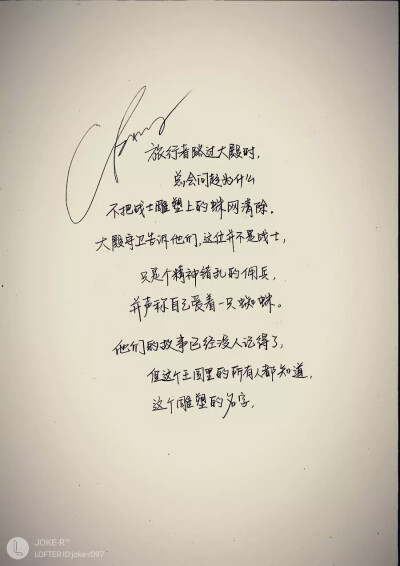 旅行者路过大殿时,
总会问起为什么
不把战士雕塑上的蛛网清除.
大殿守卫告诉他们,这位并不是战士,
只是个精神错乱的佣兵,
并声称自己爱着一只蜘蛛。
他们的故事已经没人记得了,
但这个王国里的所有人都知道,
这个雕塑的名字.
JOKE-R™
LOFTER ID:joke-r097